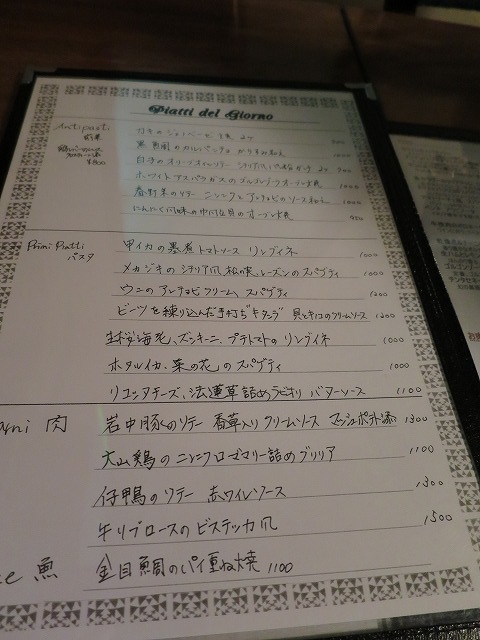 Piatti del Giorno
Antipasti
前菜
¥800
カキのジェノベーゼ
900
真鯛のカルパッチョ からすみ和え
1000
白子の
900
ホワイトアスパラガスのゴルゴンゾーラオーブン焼
1000
春野菜のソテー ニンニクとアンチョビのソース和え
1000
にんにく風味の中
貝のオーブン焼
950
Primi Piatti
パスタ
甲イカの墨煮 トマトソース リングイネ
1000
メカジキのシチリア風、松の実、レーズンのスパゲティ
1000
ウニのアンチョビクリーム スパゲティ
1200
ビーツを練り込んだ手打ち"キタッラ" 貝とキノコのクリームソース 1200
生桜海老、ズッキーニ、プチトマトのリングイネ
1000
ホタルイカ、菜の花のスパゲティ
1000
リコッタチーズ、法蓮草詰めラビオリ バターソース
1100
肉
岩中豚のソテー 香草入りクリームソース マッシュポテト添
1300
大山鶏のニンニクローズマリー詰めグリリア
1100
仔鴨のソテー 赤ワインソース
1300
牛リブロースのビステッカ風
1500
魚
金目鯛のパイ重ね焼 1100